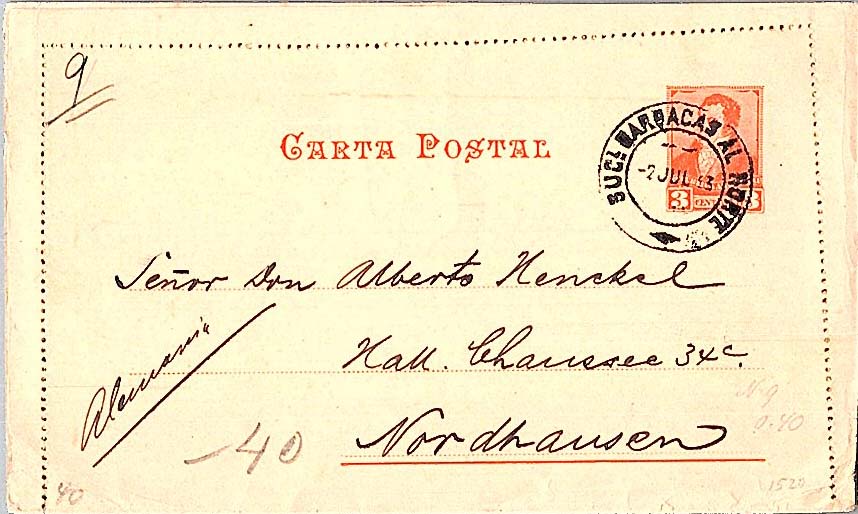 9
CARTA POSTAL
SUCL BARRACAS AL NORTE
-2 JUL 93
3 CENT 3
Señor Don Alberto Henckel
Hall. Chaussee 34c.
Alemania
Nordhausen
-40
N-9
0.40
40
1520